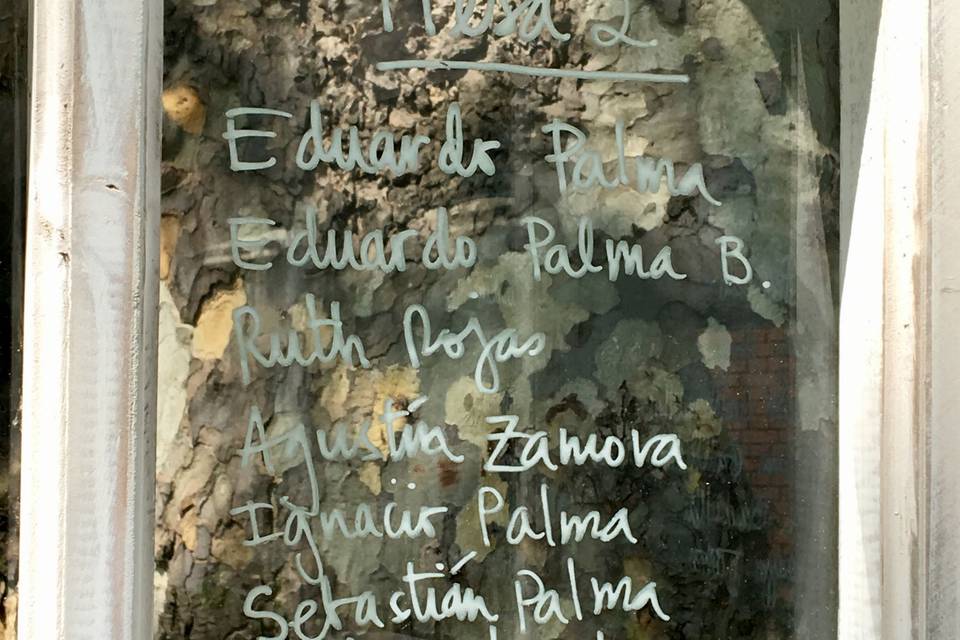 Mesa 2
Eduardo Palma
Eduardo Palma B.
Ruth Rojas
Agustín Zamora
Ignacio Palma
Sebastián Palma